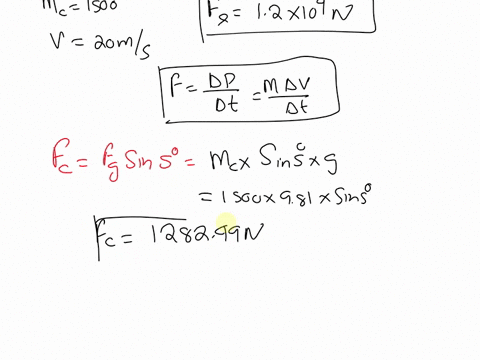 mc = 1500
F2 = 1.2 x 10⁴ N
V = 20 m/s
F = DP/Dt = M DV/Dt
Fc = Fg Sin 5° = mc x Sin 5° x g
= 1500 x 9.81 x Sin 5°
Fc = 1282.99 N